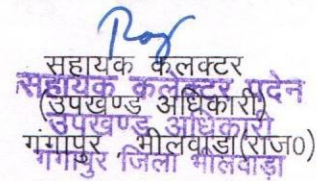 सहायक कलक्टर
सहायक कलक्टर पदेन
(उपखण्ड अधिकारी)
उपखण्ड अधिकारी
गंगापुर, भीलवाड़ा(राज०)
गंगापुर जिला भीलवाड़ा